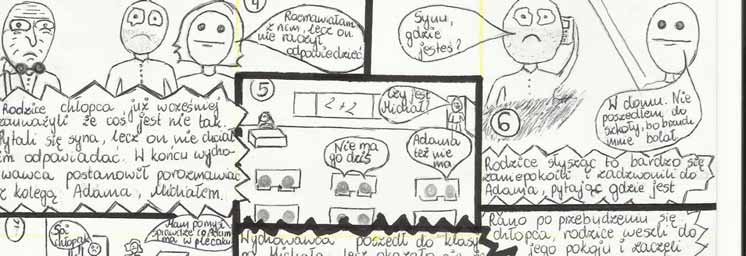 4
Rozmawiałam
z nim, lecz on
nie raczył
odpowiedzieć.
Rodzice chłopca, już wcześniej
zauważyli że coś jest nie tak.
Pytali się syna, lecz on nie chciał
im odpowiadać. W końcu wycho-
wawca postanowił porozmawiać
z kolegą Adama, Michałem.
5
2+2
Czy jest
Michał?
Nie ma
go dziś
Adama
też nie
ma
Wychowawca poszedł do klasy
po Michała, lecz okazało się
Synu,
gdzie
jesteś?
6
W domu. Nie
poszedłem do
szkoły, bo brzuch
mnie bolał
Rodzice słysząc to bardzo się
zaniepokoili i zadzwonili do
Adama, pytając gdzie jest
Rano po przebudzeniu się
chłopca, rodzice weszli do
jego pokoju i zaczęli
Mam pomysł
sprawdzę co Adam
ma w plecaku